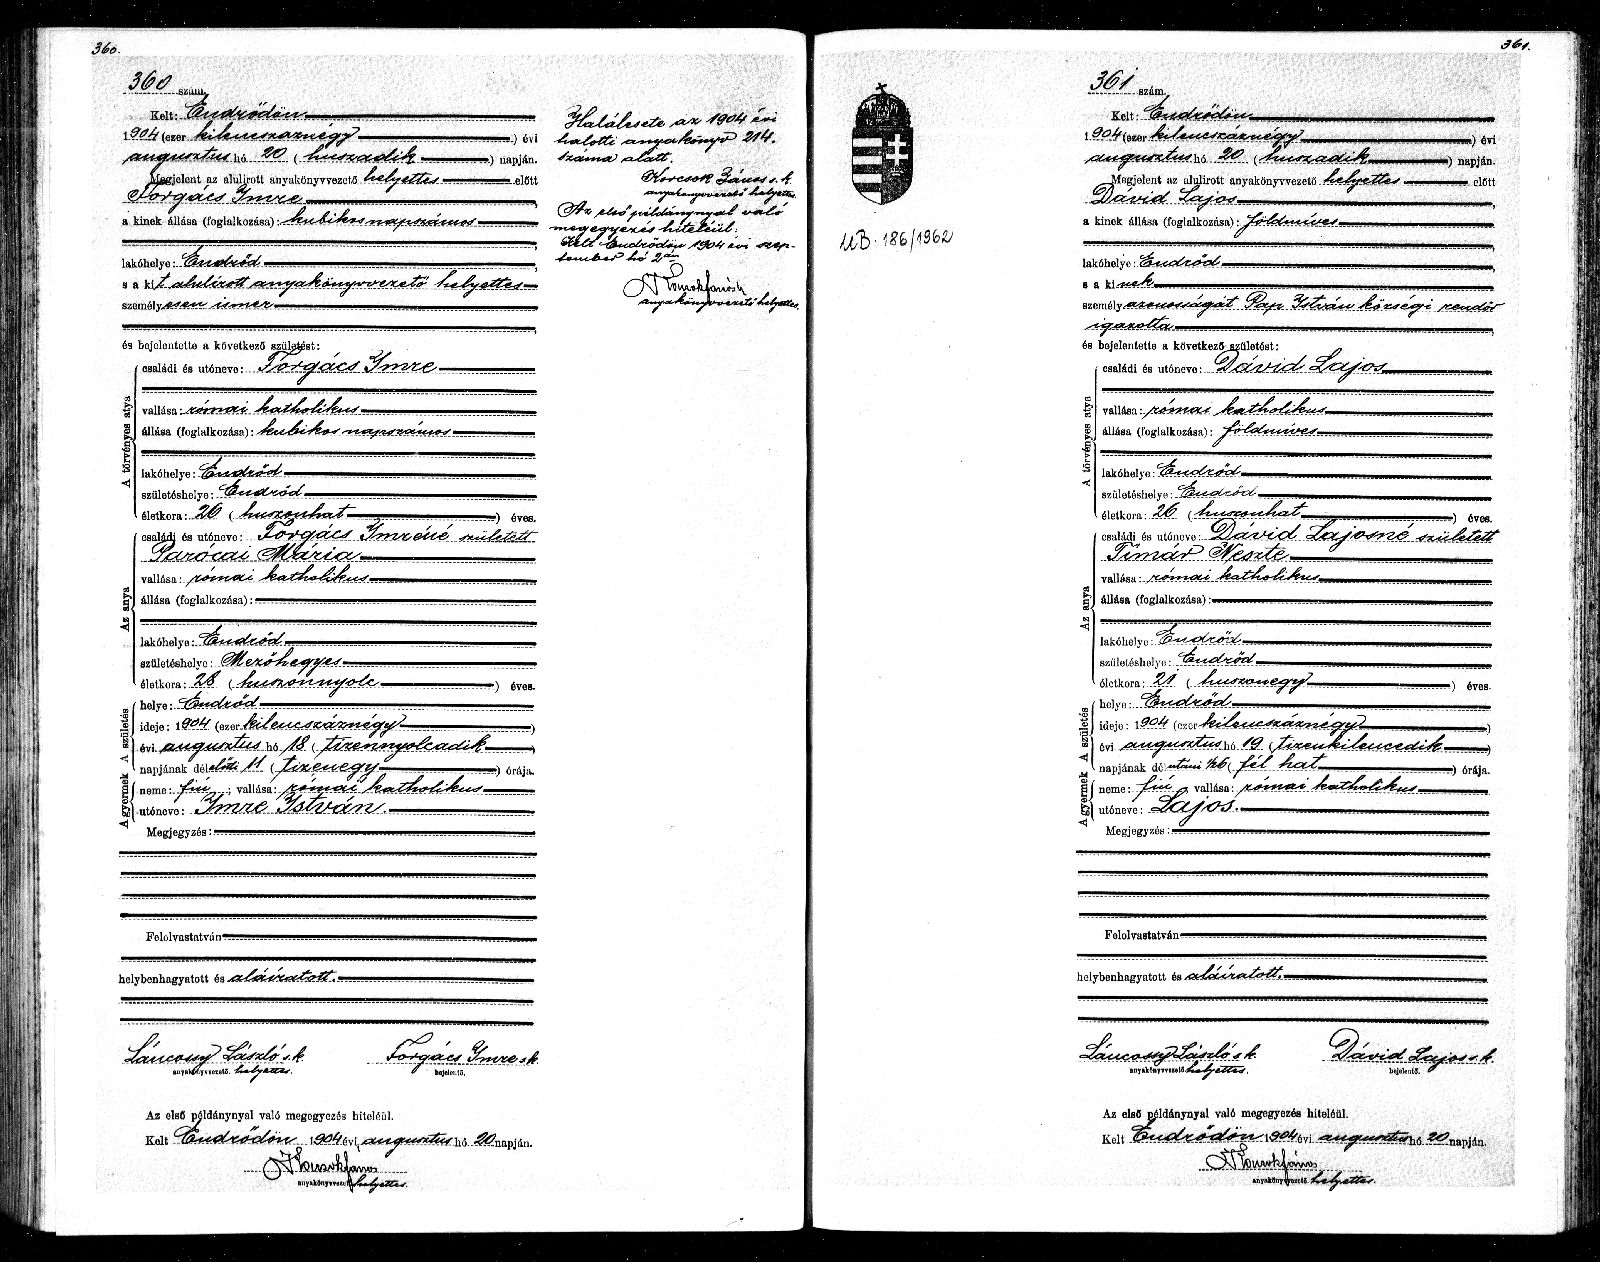 360.
360 szám.
Kelt: Endrődön
1904 (ezer kilencszáznégy) évi
augusztus hó 20 (huszadik) napján.
Megjelent az alulirott anyakönyvvezető helyettes előtt
Forgács Imre,
a kinek állása (foglalkozása): kubikos napszámos
lakóhelye: Endrőd,
s a kit alulírott anyakönyvvezető helyettes
személyesen ismer
és bejelentette a következő születést:
A törvényes atya
családi és utóneve: Forgács Imre
vallása: római katholikus
állása (foglalkozása): kubikos napszámos
lakóhelye: Endrőd
születéshelye: Endrőd
életkora: 26 (huszonhat) éves.
Az anya
családi és utóneve: Forgács Imréné született
Parócai Mária
vallása: római katholikus
állása (foglalkozása):
lakóhelye: Endrőd
születéshelye: Mezőhegyes
életkora: 28 (huszonnyolc) éves.
A születés
helye: Endrőd
ideje: 1904 (ezer kilencszáznégy)
évi augusztus hó 18 (tizennyolcadik)
napjának délelőtti 11 (tizenegy) órája.
A gyermek
neme: fiú; vallása: római katholikus
utóneve: Imre István.
Megjegyzés:
Felolvastatván
helybenhagyatott és aláíratott.
Láncossy László s. k. Forgács Imre s. k.
anyakönyvvezető helyettes. bejelentő.
Az első példánynyal való megegyezés hiteléül.
Kelt Endrődön 1904 évi augusztus hó 20 napján.
Korcsok János
anyakönyvvezető helyettes.
Haláleste az 1904 évi
halotti anyakönyv 214.
száma alatt.
Korcsok János s. k.
anyakönyvvezető helyettes.
Az első példánynyal való
megegyezés hiteléül.
Kelt Endrődön 1904 évi szep-
tember hó 2án
Korcsok János
anyakönyvvezető helyettes.
UB. 186/1962
361.
361 szám.
Kelt: Endrődön
1904 (ezer kilencszáznégy) évi
augusztus hó 20 (huszadik) napján.
Megjelent az alulirott anyakönyvvezető helyettes előtt
Dávid Lajos,
a kinek állása (foglalkozása): földmíves
lakóhelye: Endrőd,
s a kinek
személyazonosságát Pap István községi rendőr
igazolta
és bejelentette a következő születést:
A törvényes atya
családi és utóneve: Dávid Lajos
vallása: római katholikus
állása (foglalkozása): földmíves
lakóhelye: Endrőd
születéshelye: Endrőd
életkora: 26 (huszonhat) éves.
Az anya
családi és utóneve: Dávid Lajosné született
Tímár Neszte
vallása: római katholikus
állása (foglalkozása):
lakóhelye: Endrőd
születéshelye: Endrőd
életkora: 21 (huszonegy) éves.
A születés
helye: Endrőd
ideje: 1904 (ezer kilencszáznégy)
évi augusztus hó 19. (tizenkilencedik)
napjának délutáni ½6 (fél hat) órája.
A gyermek
neme: fiú vallása: római katholikus
utóneve: Lajos.
Megjegyzés:
Felolvastatván
helybenhagyatott és aláíratott.
Láncossy László s. k. Dávid Lajos s. k.
anyakönyvvezető helyettes. bejelentő.
Az első példánynyal való megegyezés hiteléül.
Kelt Endrődön 1904 évi augusztus hó 20 napján.
Korcsok János
anyakönyvvezető helyettes.